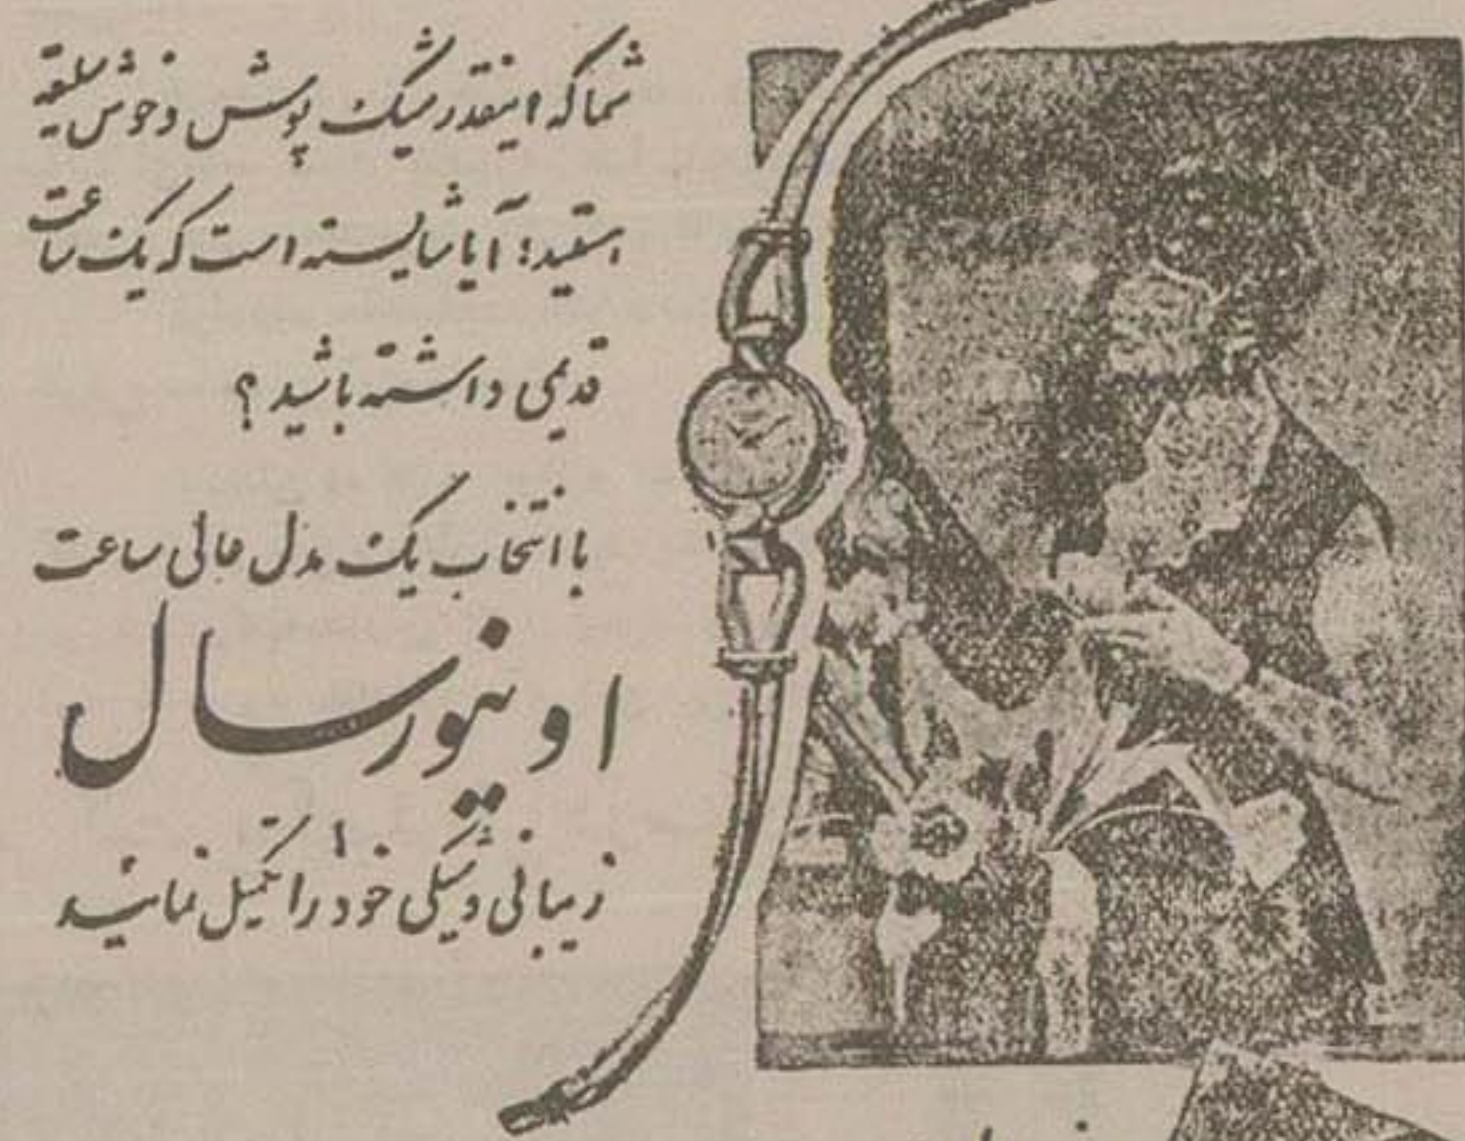 شما که اینقدر شیک پوش و خوش سلیقه
هستید؛ آیا شایسته است که یک ساعت
قدیمی داشته باشید؟
با انتخاب یک مدل عالی ساعت
اونیورسال
زیبائی و شیکی خود را تکمیل نمائید